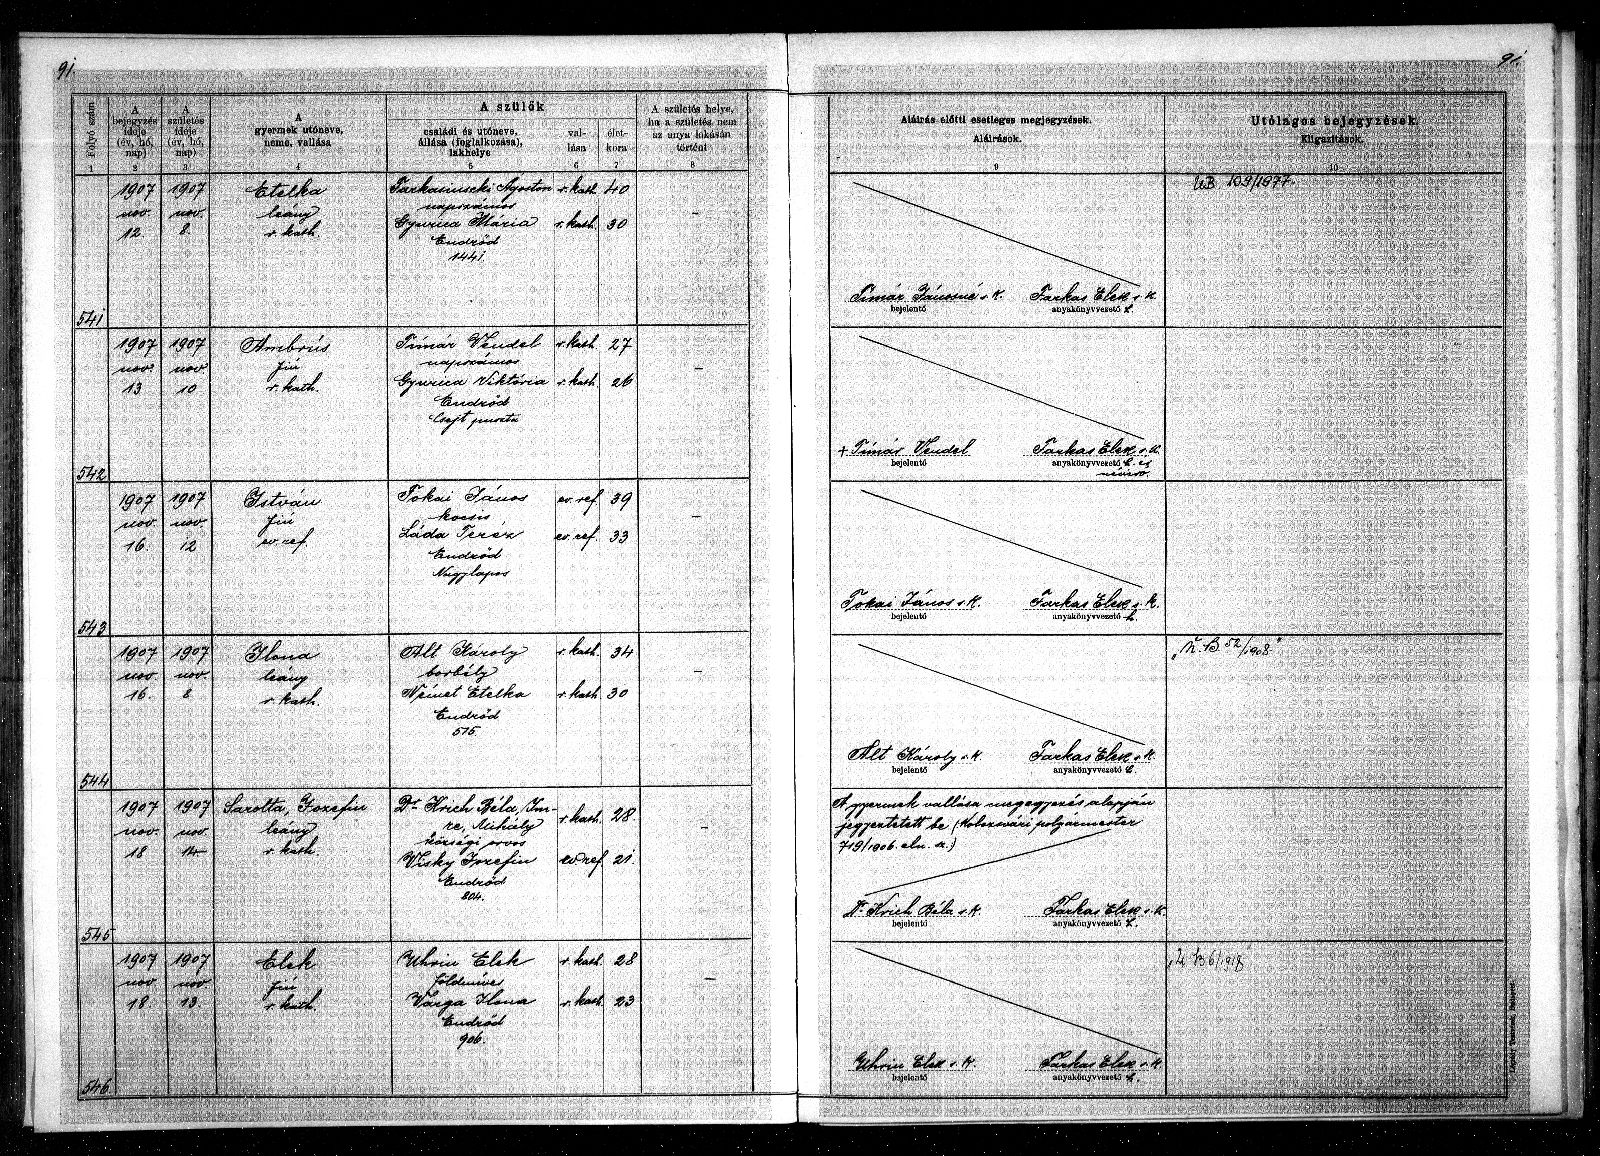 91.
91.
Folyó szám
A bejegyzés ideje (év, hó, nap)
A születés ideje (év, hó, nap)
A gyermek utóneve, neme, vallása
A szülők
családi és utóneve, állása (foglalkozása), lakhelye
vallása
életkora
A születés helye, ha a születés nem az anya lakásán történt
Aláírás előtti esetleges megjegyzések.
Aláírások.
Utólagos bejegyzések.
Kiigazítások.
1 2 3 4 5 6 7 8 9 10
1907 1907 Etelka Farkasinszki Ágoston r. kath. 40 –
nov. nov. leány napszámos
12. 8. r. kath. Gyurica Mária r. kath. 30
Endrőd
1441.
541
UB 109/1977.
Tímár Jánosné s. k. Farkas Elek s. k.
bejelentő anyakönyvvezető h.
1907 1907 Ambrús Tímár Vendel r. kath. 27 –
nov. nov. fiú napszámos
13 10 r. kath. Gyurica Viktória r. kath. 26
Endrőd
Csejt puszta
542
+ Tímár Vendel Farkas Elek s. k.
bejelentő anyakönyvvezető h. és
névíró.
1907 1907 István Tokai János ev. ref. 39 –
nov. nov. fiú kocsis
16. 12 ev. ref. Láda Teréz ev. ref. 33
Endrőd
Nagylapos
543
Tokai János s. k. Farkas Elek s. k.
bejelentő anyakönyvvezető h.
1907 1907 Ilona Alt Károly r. kath. 34 –
nov. nov. leány borbély
16. 8 r. kath. Német Etelka r. kath. 30
Endrőd
515.
544
B 52/1908"
Alt Károly s. k. Farkas Elek s. k.
bejelentő anyakönyvvezető h.
1907 1907 Sarolta, Jozefin Dr. Krich Béla, Im-
nov. nov. leány re, Mihály r. kath. 28 –
18 14 r. kath. községi orvos
Visky Jozefin ev. ref. 21.
Endrőd
804.
545
A gyermek vallása megegyezés alapján
jegyeztetett be (Kolozsvári polgármester
719/1906. eln. sz.)
Dr. Krich Béla s. k. Farkas Elek s. k.
bejelentő anyakönyvvezető h.
1907 1907 Elek Uhrin Elek r. kath. 28 –
nov nov fiú földmíves
18 13 r. kath. Varga Ilona r. kath. 23
Endrőd
906.
546
Uhrin Elek s. k. Farkas Elek s. k.
bejelentő anyakönyvvezető h.